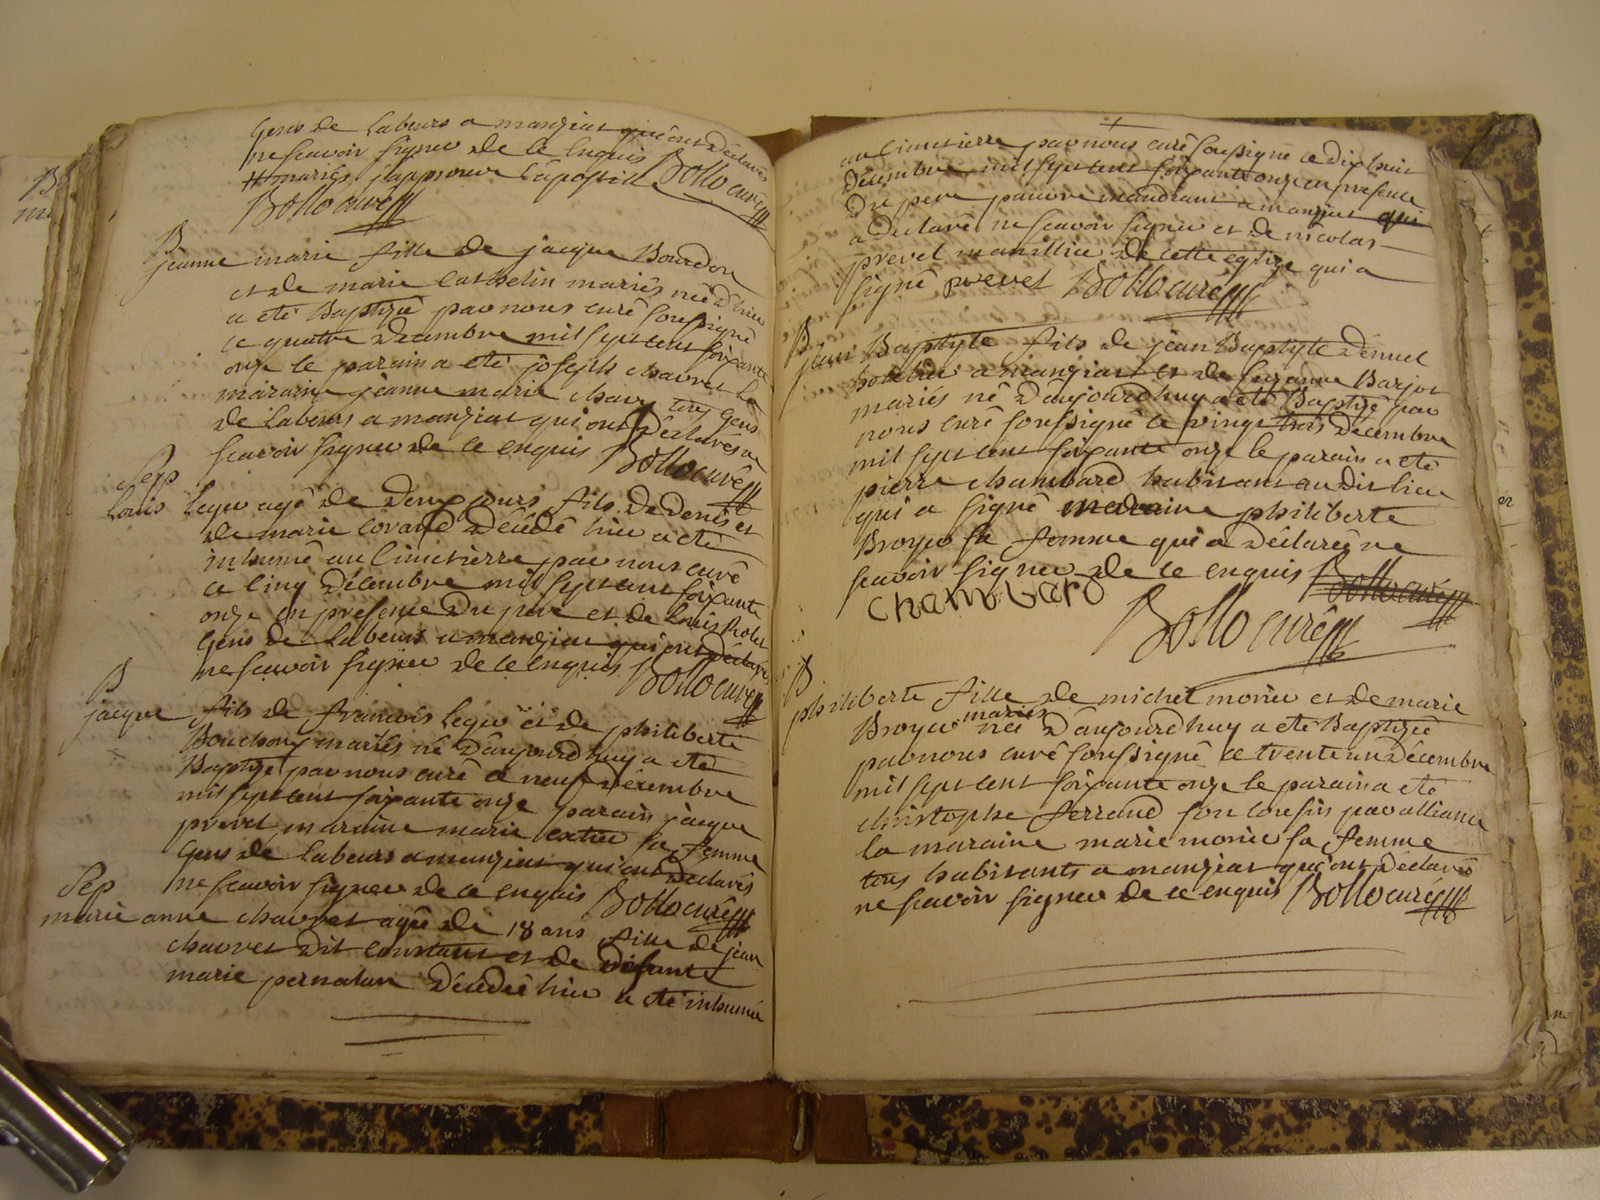 gens de labeurs a manziat qui ont déclarés
ne scavoir signer de ce enquis Bollo curé
mariés j'approuve l'apostille
Bollo curé
B
jeanne marie fille de jacque Bourdon
et de marie Cathelin mariés née d'hier
a eté Baptizée par nous curé soussigné
ce quatre décembre mil sept cent soixante
onze le parain a eté joseph chauvet la
maraine jeanne marie chary tous gens
de labeurs a manziat qui ont déclarés ne
scavoir signer de ce enquis Bollo curé
Sep
Louis lequ agé de deux jours fils de denis et
de marie décédé hier a eté
inhumé au cimetierre par nous curé
ce cinq décembre mil sept cent soixante
onze en presence du pere et de Louis
gens de labeurs a manziat qui ont déclaré
ne scavoir signer de ce enquis Bollo curé
B
jacque fils de francois lequ et de philiberte
Bouchoux mariés né d'aujourd'huy a eté
Baptizé par nous curé ce neuf décembre
mil sept cent soixante onze parain jacque
prevet maraine marie sa femme
gens de labeurs a manziat qui ont déclarés
ne scavoir signer de ce enquis Bollo curé
Sep
marie anne chauvet agée de 18 ans fille de jean
chauvet dit constant et de défunte
marie pernatan décédée hier a eté inhumée
au cimetierre par nous curé soussigné ce dix huit
décembre mil sept cent soixante onze en presence
du pere pauvre mandiant a manziat qui
a declaré ne scavoir signer et de nicolas
prevet marillier de cette eglize qui a
signé prevet Bollo curé
B
jean Baptyte fils de jean Baptyte denuel
hotelier a manziat et de suzanne Barjot
mariés né d'aujourd'huy a eté Baptizé par
nous curé soussigné ce vingt trois décembre
mil sept cent soixante onze le parain a eté
pierre chambard habitant au dit lieu
qui a signé maraine philiberte
Broyer sa femme qui a déclarée ne
scavoir signer de ce enquis Bollo curé
chambard
Bollo curé
B
philiberte fille de michel morier et de marie
mariés
Broyer née d'aujourd'huy a eté Baptizée
par nous curé soussigné ce trente un décembre
mil sept cent soixante onze le parain a eté
christophe ferrand son cousin par alliance
la maraine marie morier sa femme
tous habitants a manziat qui ont déclarés
ne scavoir signer de ce enquis Bollo curé